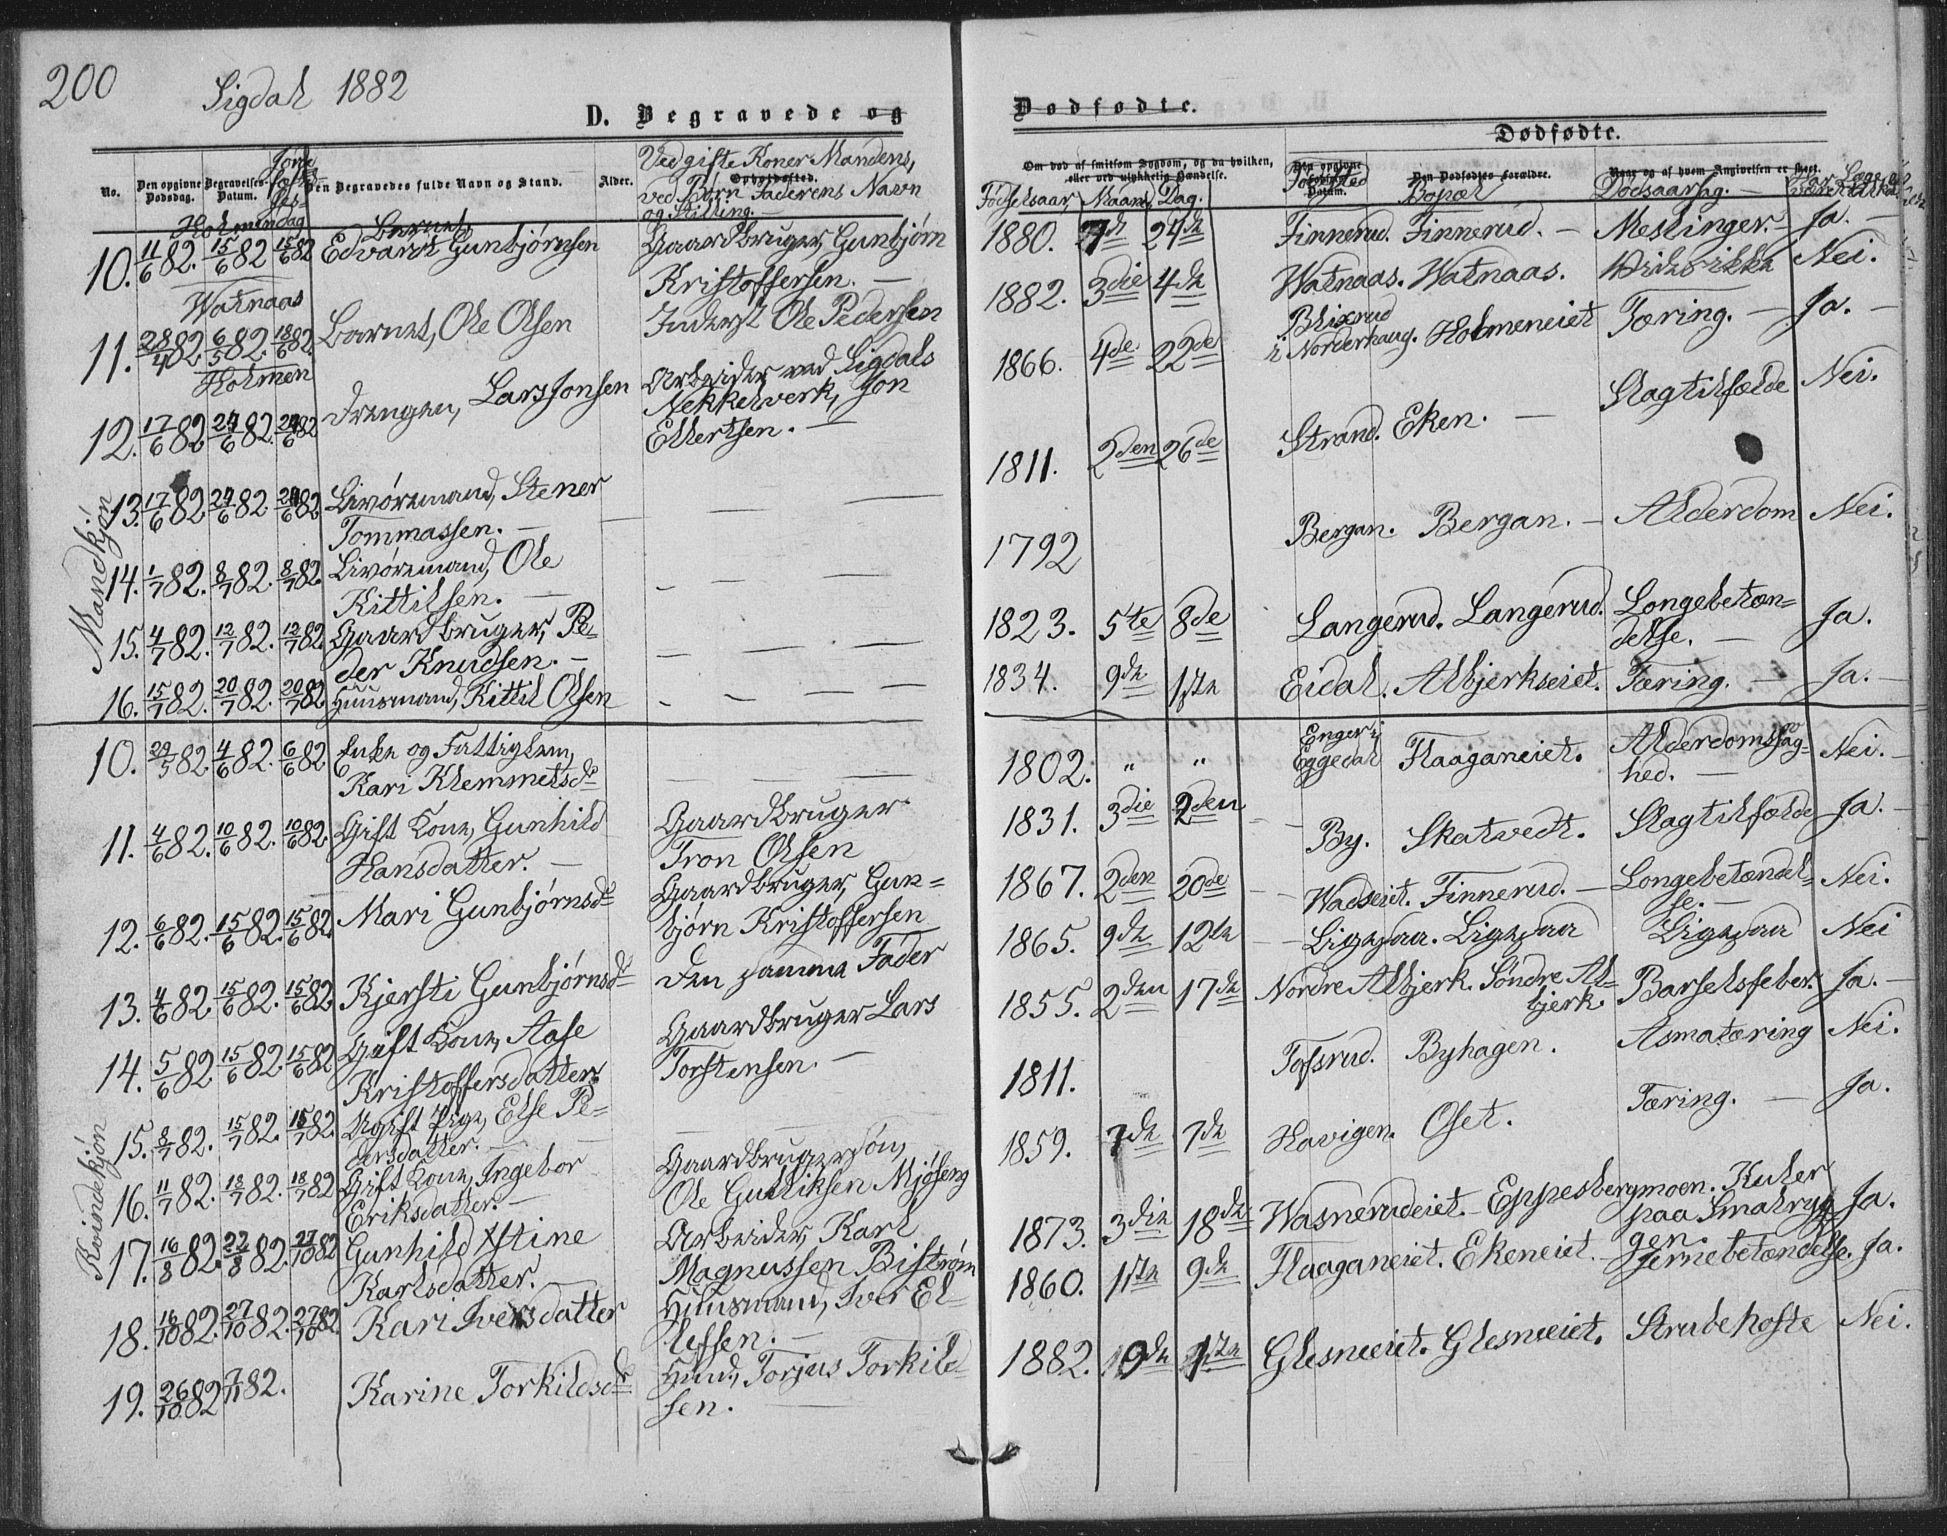 200
Sigdal 1882
D. Begravede og
Dødfødte.
Dødfødte.
No.
Den opgivne Dødsdag.
Begravelses-Datum.
Jords
Den Begravedes fulde Navn og Stand.
Alder.
Ved gifte Koner Mandens,
Opholdssted.
ved Børn Faderens Navn
og Stilling.
Om død af smitsom Sygdom, og da hvilken,
eller ved ulykkelig Hændelse.
Fødselsaar, Maaned, Dag.
Den opgivne Fødsels-Datum.
Fødested
Den Dødfødtes Forældre.
Bopæl
Naar og af hvem Angivelsen er skeet.
Dødsaarsag.
Mandkjøn
Holmen
10. 11/6 82. 15/6 82 15/6 82 Barnet Edvart Gunbjørnsen Gaardbruger, Gunbjørn Kristoffersen. 1880. 7de 24de Finnerud. Finnerud. Meslinger. Ja.
Watnaas
11. 28/4 82. 6/5 82. 18/6 82. Barnet, Ole Olsen Inderst Ole Pedersen 1882. 3die 4de Watnaas. Watnaas. Vides ikke Nei.
Holmen
12. 17/6 82 24/6 82. 24/6 82 Drengen, Lars Jonsen Arbeider ved Sigdals Nekkelverk, Jon Ellertsen. 1866. 4de 22de Blixrud i Norderhaug. Holmeneiet Tæring. Ja.
13. 17/6 82. 24/6 82. 24/6 82. Livøremand, Stener Tommassen. 1811. 2den 26de Strand. Eken. Slagtilfælde Nei.
14. 1/7 82. 8/7 82. 8/7 82. Livøremand, Ole Kittilsen. 1792 Bergan. Bergan. Alderdom Nei.
15. 4/7 82. 12/7 82. 12/7 82. Gaardbruger, Peder Knudsen. 1823. 5te 8de Langerud. Langerud. Longebetændelse. Ja.
16. 15/7 82. 20/7 82. 20/7 82. Huusmand, Kittil Olsen 1834. 9de 1ste Eidal. Albjerkseiet. Tæring. Ja.
Kvindekjøn
10. 29/5 82. 4/6 82. 6/6 82. Enke og Fattiglem, Kari Klemmetsdr 1802. " " Enger i Eggedal Flaaganeiet. Alderdomssvaghed. Nei.
11. 4/6 82. 10/6 82. 10/6 82. Gift Kone, Gunhild Hansdatter. Gaardbruger Tron Olsen 1831. 3die 2den By. Skatvedt. Slagtilfælde Ja.
12. 6/6 82. 15/6 82. 15/6 82. Mari Gunbjørnsdr Gaardbruger, Gunbjørn Kristoffersen 1867. 2den 20de Wadseiet. Finnerud. Longebetændelse. Nei.
13. 4/6 82. 15/6 82. 15/6 82. Kjersti Gunbjørnsdr Den samme Fader 1865. 9de 12te Ligesaa. Ligesaa Ligesaa Nei
14. 5/6 82 15/6 82. 15/6 82 Gift Kone, Aase Kristoffersdatter. Gaardbruger Lars Torstensen. 1855. 2den 17de Nordre Albjerk. Søndre Albjerk. Barselsfeber. Ja.
15. 8/7 82. 15/7 82. 15/7 82. Ugift Pige, Else Pedersdatter. 1811. Tofsrud. Byhagen. Asmatæring Nei.
16. 11/7 82. 18/7 82. 18/7 82 Gift Kone, Ingebor Eriksdatter. Gaardbrugersøn, Ole Gulliksen Mjøseng 1859. 7de 7de Havigen. Oset. Tæring. Ja.
17. 16/8 82. 22/8 82. 27/10 82 Gunhild Kristine Karlsdatter. Arbeider, Karl Magnussen Bistrøm 1873. 3die 18de Wasnerudeiet. Eppesbergmoen. Kuler paa Smalryggen. Ja.
18. 16/10 82. 27/10 82. 27/10 82. Kari Iversdatter Huusmand, Iver Ellefsen. 1860. 1ste 9de Flaaganeiet. Ekeneiet. Jernebetændelse. Ja.
19. 26/10 82 7/11 82. Karine Torkildsdr Huusmd., Torjus Torkildsen. 1882. 10de 1ste Glesneeiet. Glesneeiet. Strubehoste Nei.